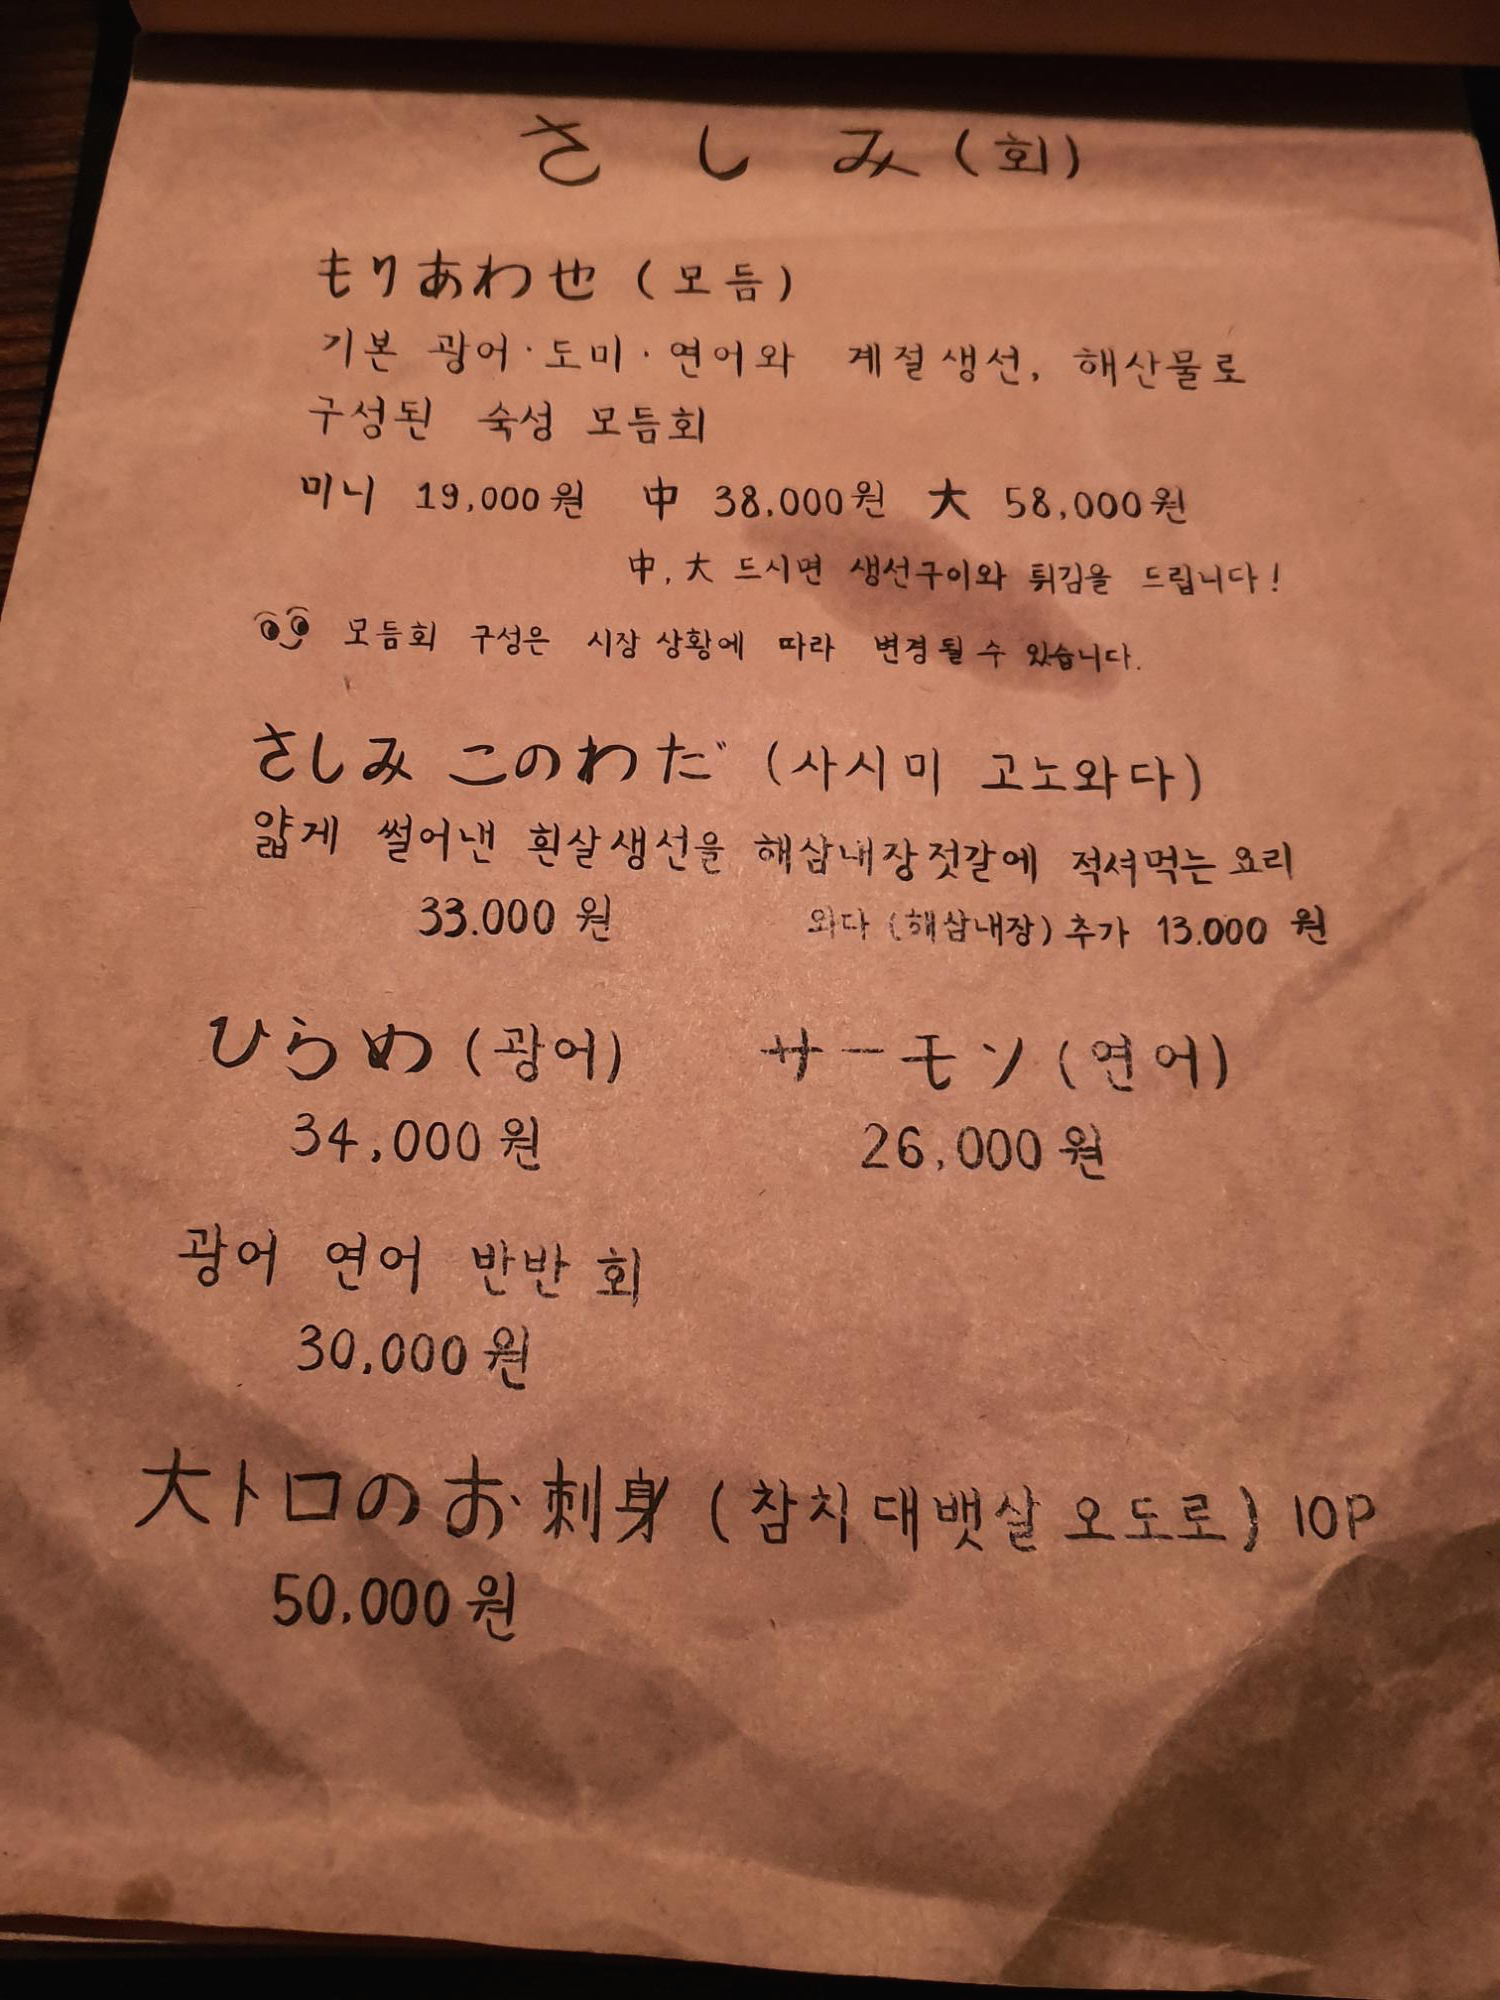 さしみ (회)
もりあわ也 (모듬)
기본 광어·도미·연어와 계절생선, 해산물로
구성된 숙성 모듬회
미니 19,000원 中 38,000원 大 58,000원
中, 大 드시면 생선구이와 튀김을 드립니다!
모듬회 구성은 시장 상황에 따라 변경될 수 있습니다.
さしみ このわだ (사시미 고노와다)
얇게 썰어낸 흰살생선을 해삼내장젓갈에 적셔먹는 요리
33.000 원 와다 (해삼내장) 추가 13.000 원
ひらめ (광어) サーモン (연어)
34,000원 26,000원
광어 연어 반반 회
30,000원
大トロのお刺身 (참치대뱃살 오도로) 10P
50,000원